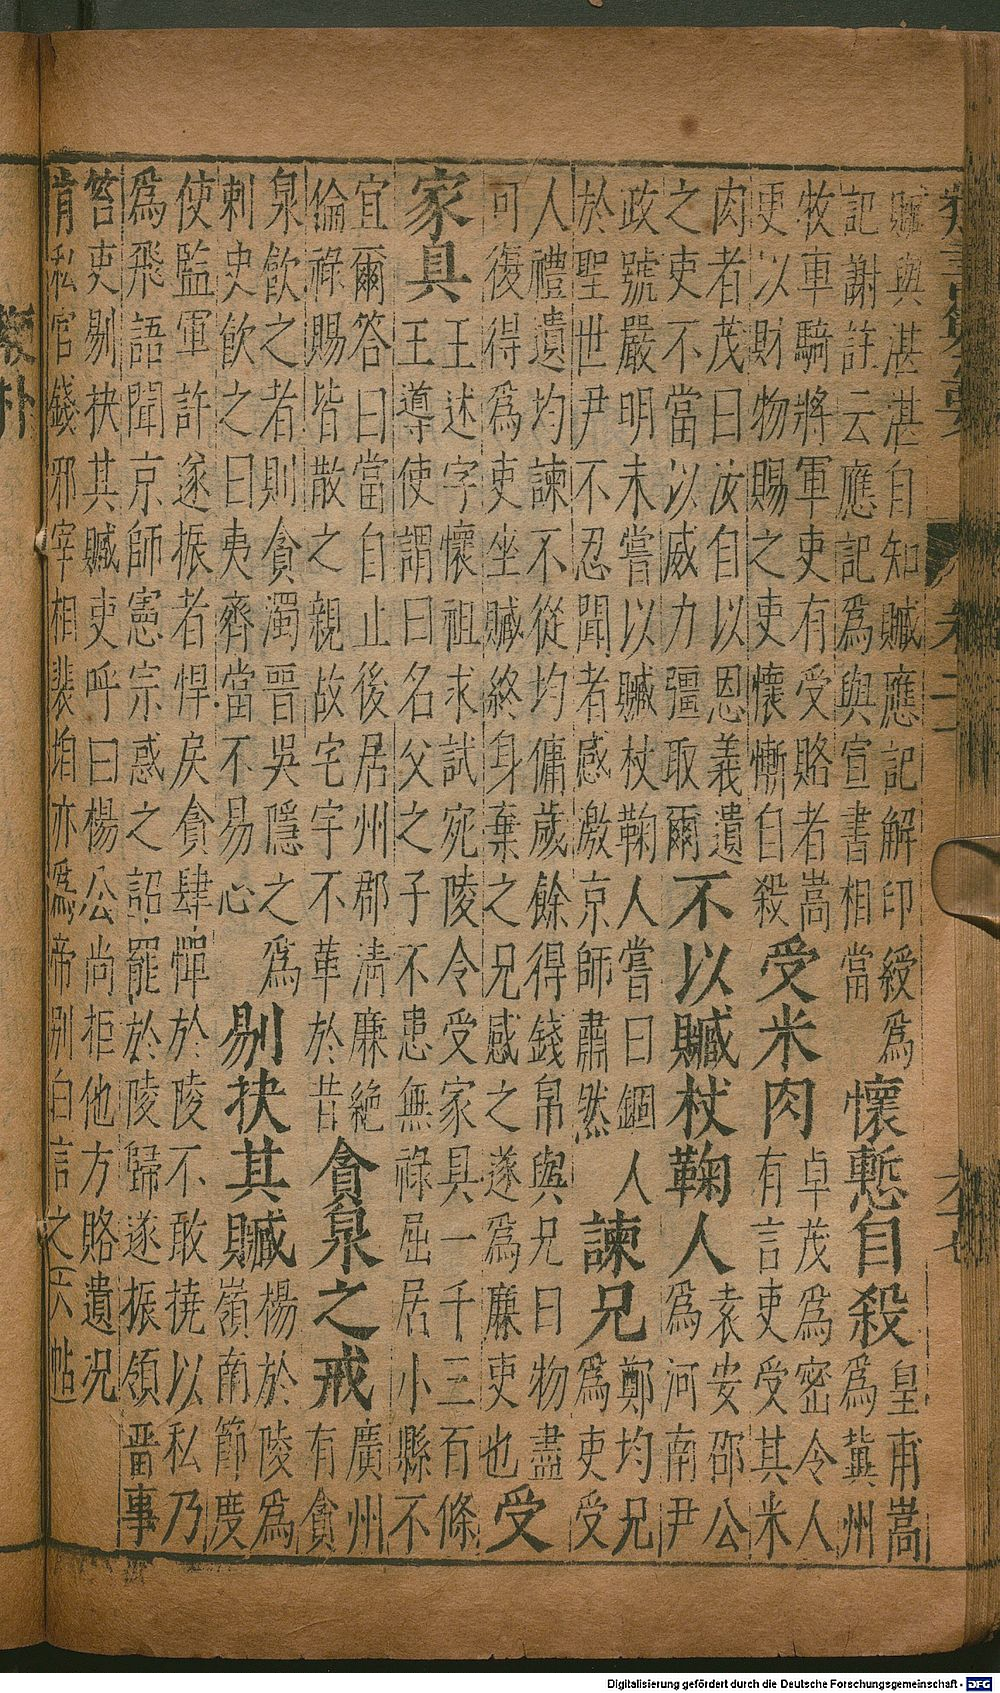 贓與湛湛自知贓應記解印綬爲
記謝註云應記爲與宣書相當
懷慙自殺
皇甫嵩
爲冀州
牧車騎將軍吏有受賂者嵩
更以財物賜之吏懷慚自殺
受米肉
卓茂爲密令人
有言吏受其米
肉者茂曰汝自以恩義遺
之吏不當以威力彊取爾
不以贓杖鞠人
袁安邵公
爲河南尹
政號嚴明未嘗以贓杖鞠人嘗曰錮人
於聖世尹不忍聞者感激京師肅然
諫兄
鄭均兄
爲吏受
人禮遺均諫不從均傭歲餘得錢帛與兄曰物盡
可復得爲吏坐贓終身棄之兄感之遂爲廉吏也
受
家具
王述字懷祖求試宛陵令受家具一千三百條
王導使謂曰名父之子不患無祿屈居小縣不
宜爾答曰當自止後居州郡清廉絶
倫祿賜皆散之親故宅宇不華於昔
貪泉之戒
廣州
有貪
泉飲之者則貪濁晉吳隱之爲
刺史飲之曰夷齊當不易心
剔抉其贓
楊於陵爲
嶺南節度
使監軍許遂振者悍戾貪肆憚於陵不敢撓以私乃
爲飛語聞京師憲宗惑之詔罷於陵歸遂振領畱事
笞吏剔抉其贓吏呼曰楊公尚拒他方賂遺況
肯私官錢邪宰相裴垍亦爲帝別白言之六帖
Digitalisierung gefördert durch die Deutsche Forschungsgemeinschaft - DFG